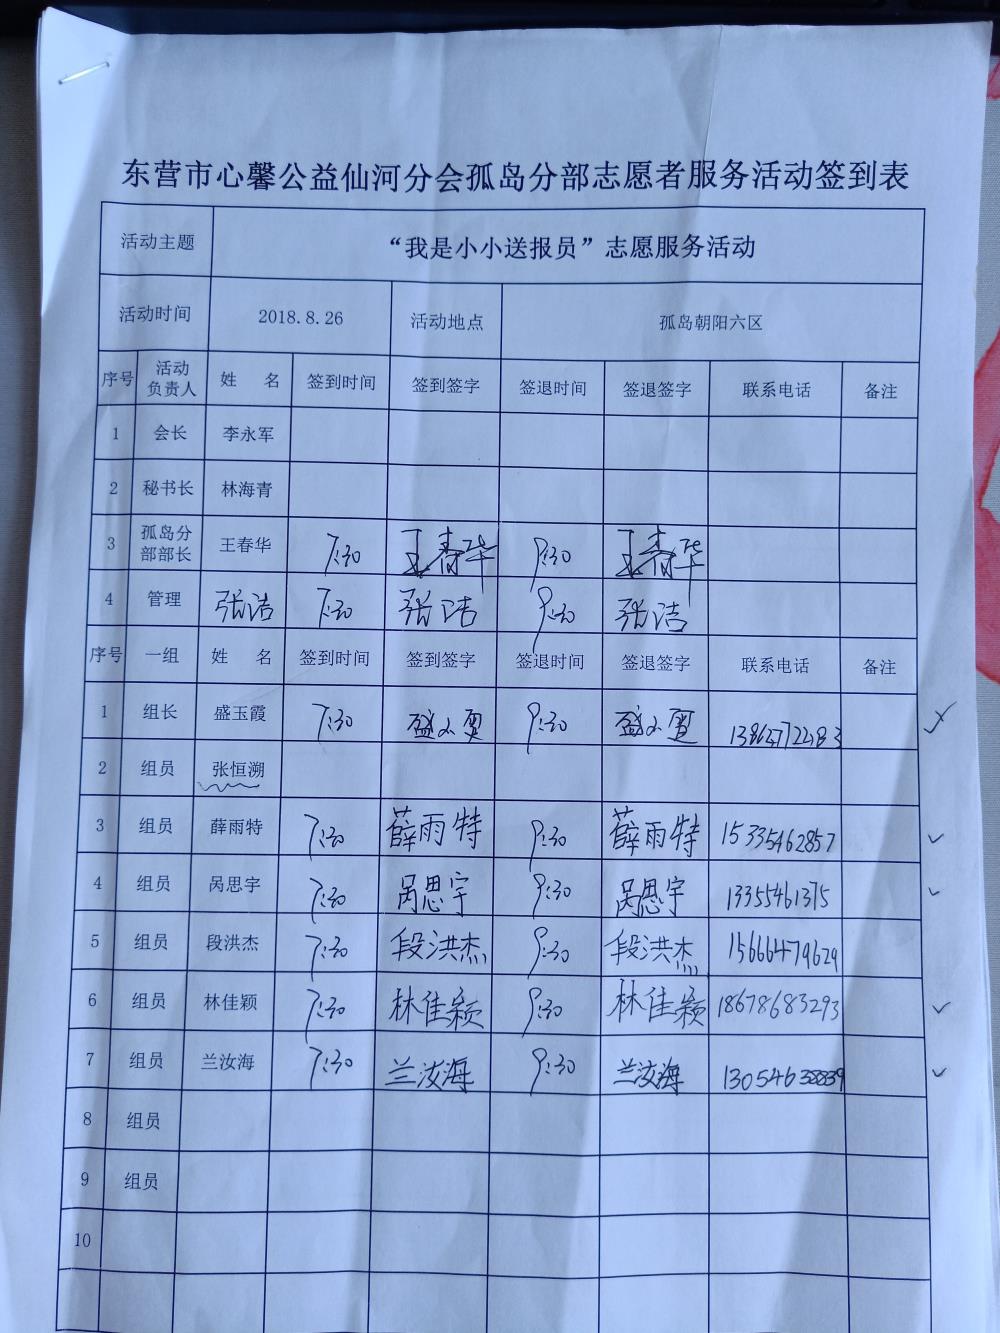 东营市心馨公益仙河分会孤岛分部志愿者服务活动签到表
活动主题 “我是小小送报员”志愿服务活动
活动时间 2018.8.26 活动地点 孤岛朝阳六区
序号 活动负责人 姓 名 签到时间 签到签字 签退时间 签退签字 联系电话 备注
1 会长 李永军
2 秘书长 林海青
3 孤岛分部部长 王春华 7:30 王春华 9:30 王春华
4 管理 张洁 7:30 张洁 9:30 张洁
序号 一组 姓 名 签到时间 签到签字 签退时间 签退签字 联系电话 备注
1 组长 盛玉霞 7:30 9:30
2 组员 张恒溯
3 组员 薛雨特 7:30 薛雨特 9:30 薛雨特 15335462857
4 组员 呙思宇 7:30 呙思宇 9:30 呙思宇 13355461375
5 组员 段洪杰 7:30 段洪杰 9:30 段洪杰 15666479629
6 组员 林佳颖 7:30 林佳颖 9:30 林佳颖 18678683293
7 组员 兰汝海 7:30 兰汝海 9:30 兰汝海
8 组员
9 组员
10